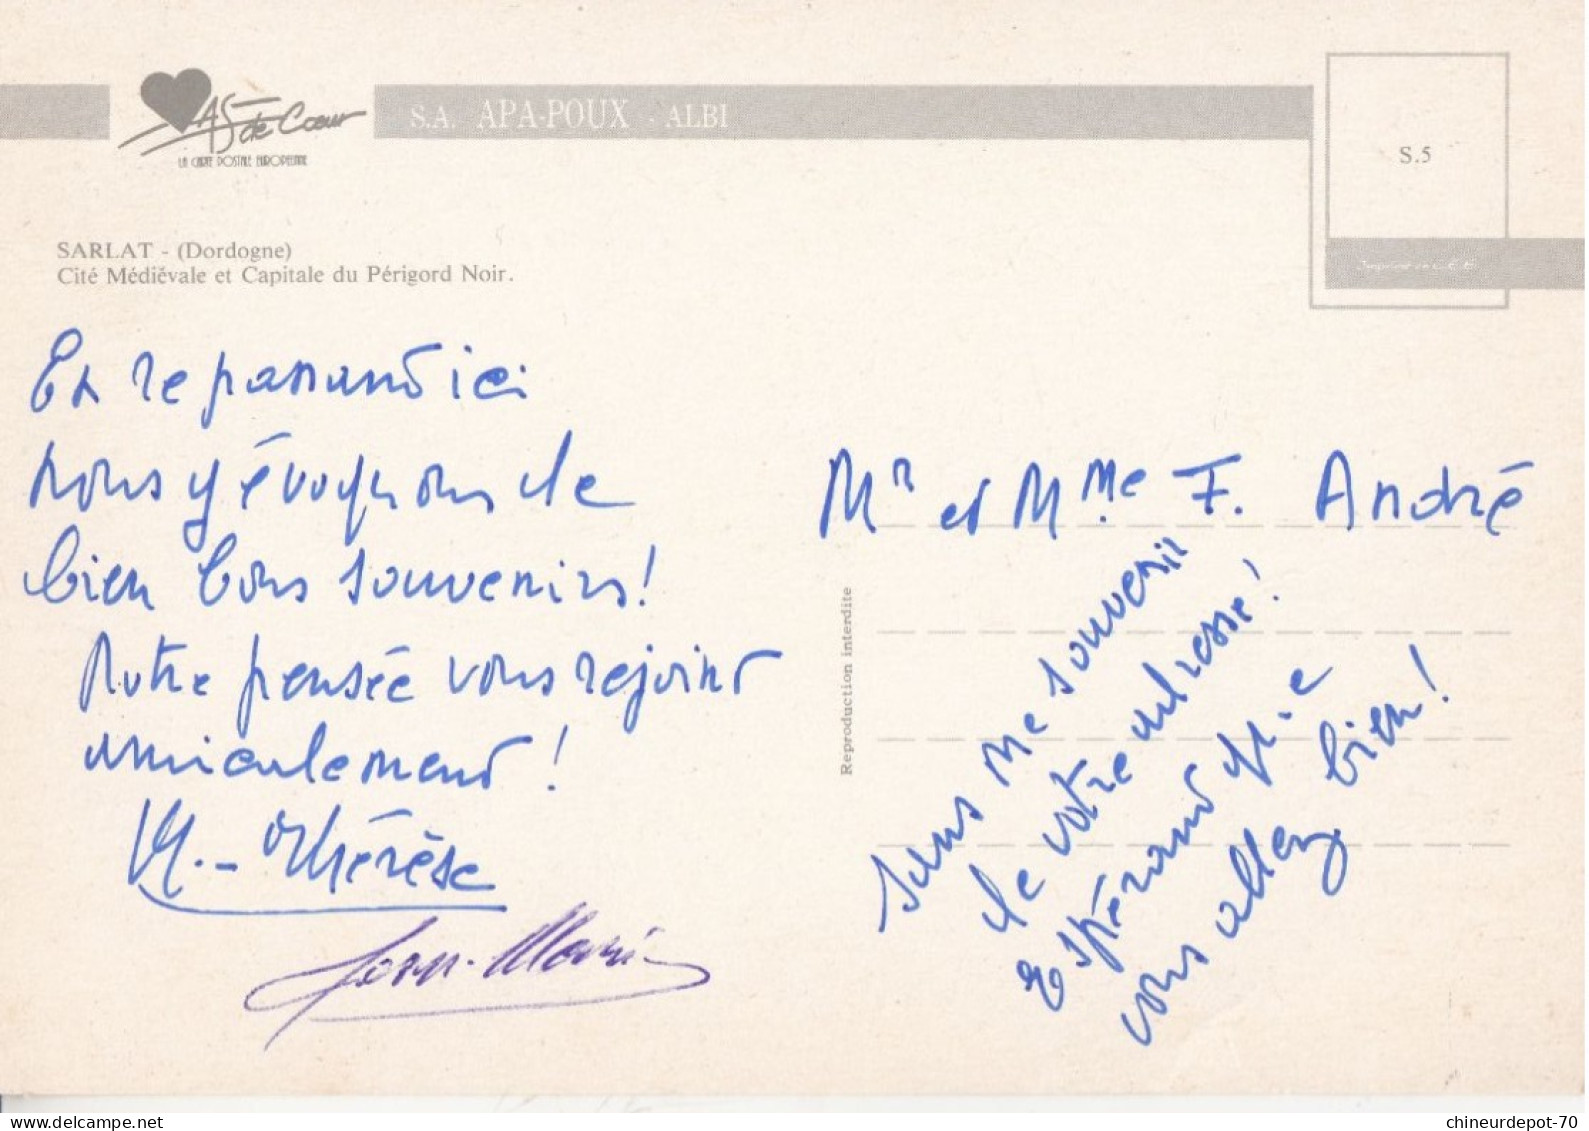 AS de Cœur
LA CARTE POSTALE EUROPEENNE
S.A. APA-POUX - ALBI
S.5
SARLAT - (Dordogne)
Cité Médiévale et Capitale du Périgord Noir.
En repassant ici
nous y évoquons de
bien bons souvenirs!
Notre pensée vous rejoint
amicalement!
M.-Thérèse
Jean-Marie
Reproduction interdite
Mr et Mme F. André
sans me souvenir
de votre adresse!
Espérant que
vous allez bien!
www.delcampe.net
chineurdepot-70